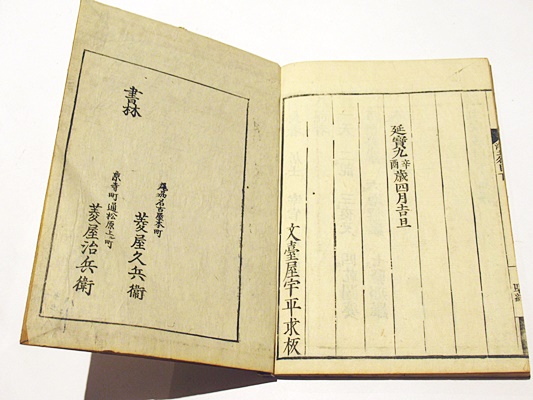 延寶九辛酉歳四月吉旦
文臺屋宇平求板
書林
名古屋本町
菱屋久兵衞
京寺町通松原上町
菱屋治兵衞